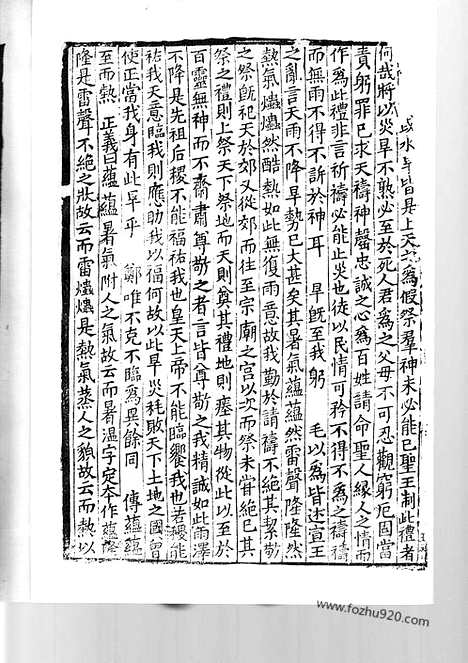 或水旱皆是上天之為假祭羣神未必能已聖王制此禮者
何哉將以災旱不熟必至於死人君為之父母不可忍觀窮厄固當
責躬罪己求天禱神罄忠誠之心為百姓請命聖人緣人之情而
作為此禮非言祈禱必能止災也徒以民情可矜不得不為之禱禱
而無雨不得不訴於神耳 旱既至我躬 毛以為皆述宣王
之亂言天雨不降旱勢已大甚矣其暑氣蘊蘊然雷聲隆隆然
熱氣爞爞然酷熱如此無復雨意故我勤於請禱不絕其絜敬
之祭既祀天於郊又從郊而往至宗廟之宮以次而祭未甞絕已其
祭之禮則上祭天下祭地而天則奠其禮地則瘞其物從此以至於
百靈無神而不齋肅尊敬之者言皆尊敬之我精誠如此雨澤
不降是先祖后稷不能福祐我也皇天上帝不能臨饗我也若稷能
祐我天意臨我則應助我以福何故以此旱災耗敗天下土地之國曾
使正當我身有此旱乎 鄭唯不克不臨為異餘同 傳蘊蘊
至而熱 正義曰蘊蘊暑氣附人之氣故云而暑溫字定本作蘊
隆是雷聲不絕之狀故云而雷爞爞是熱氣蒸人之貌故云而熱以
www.fozhu920.com